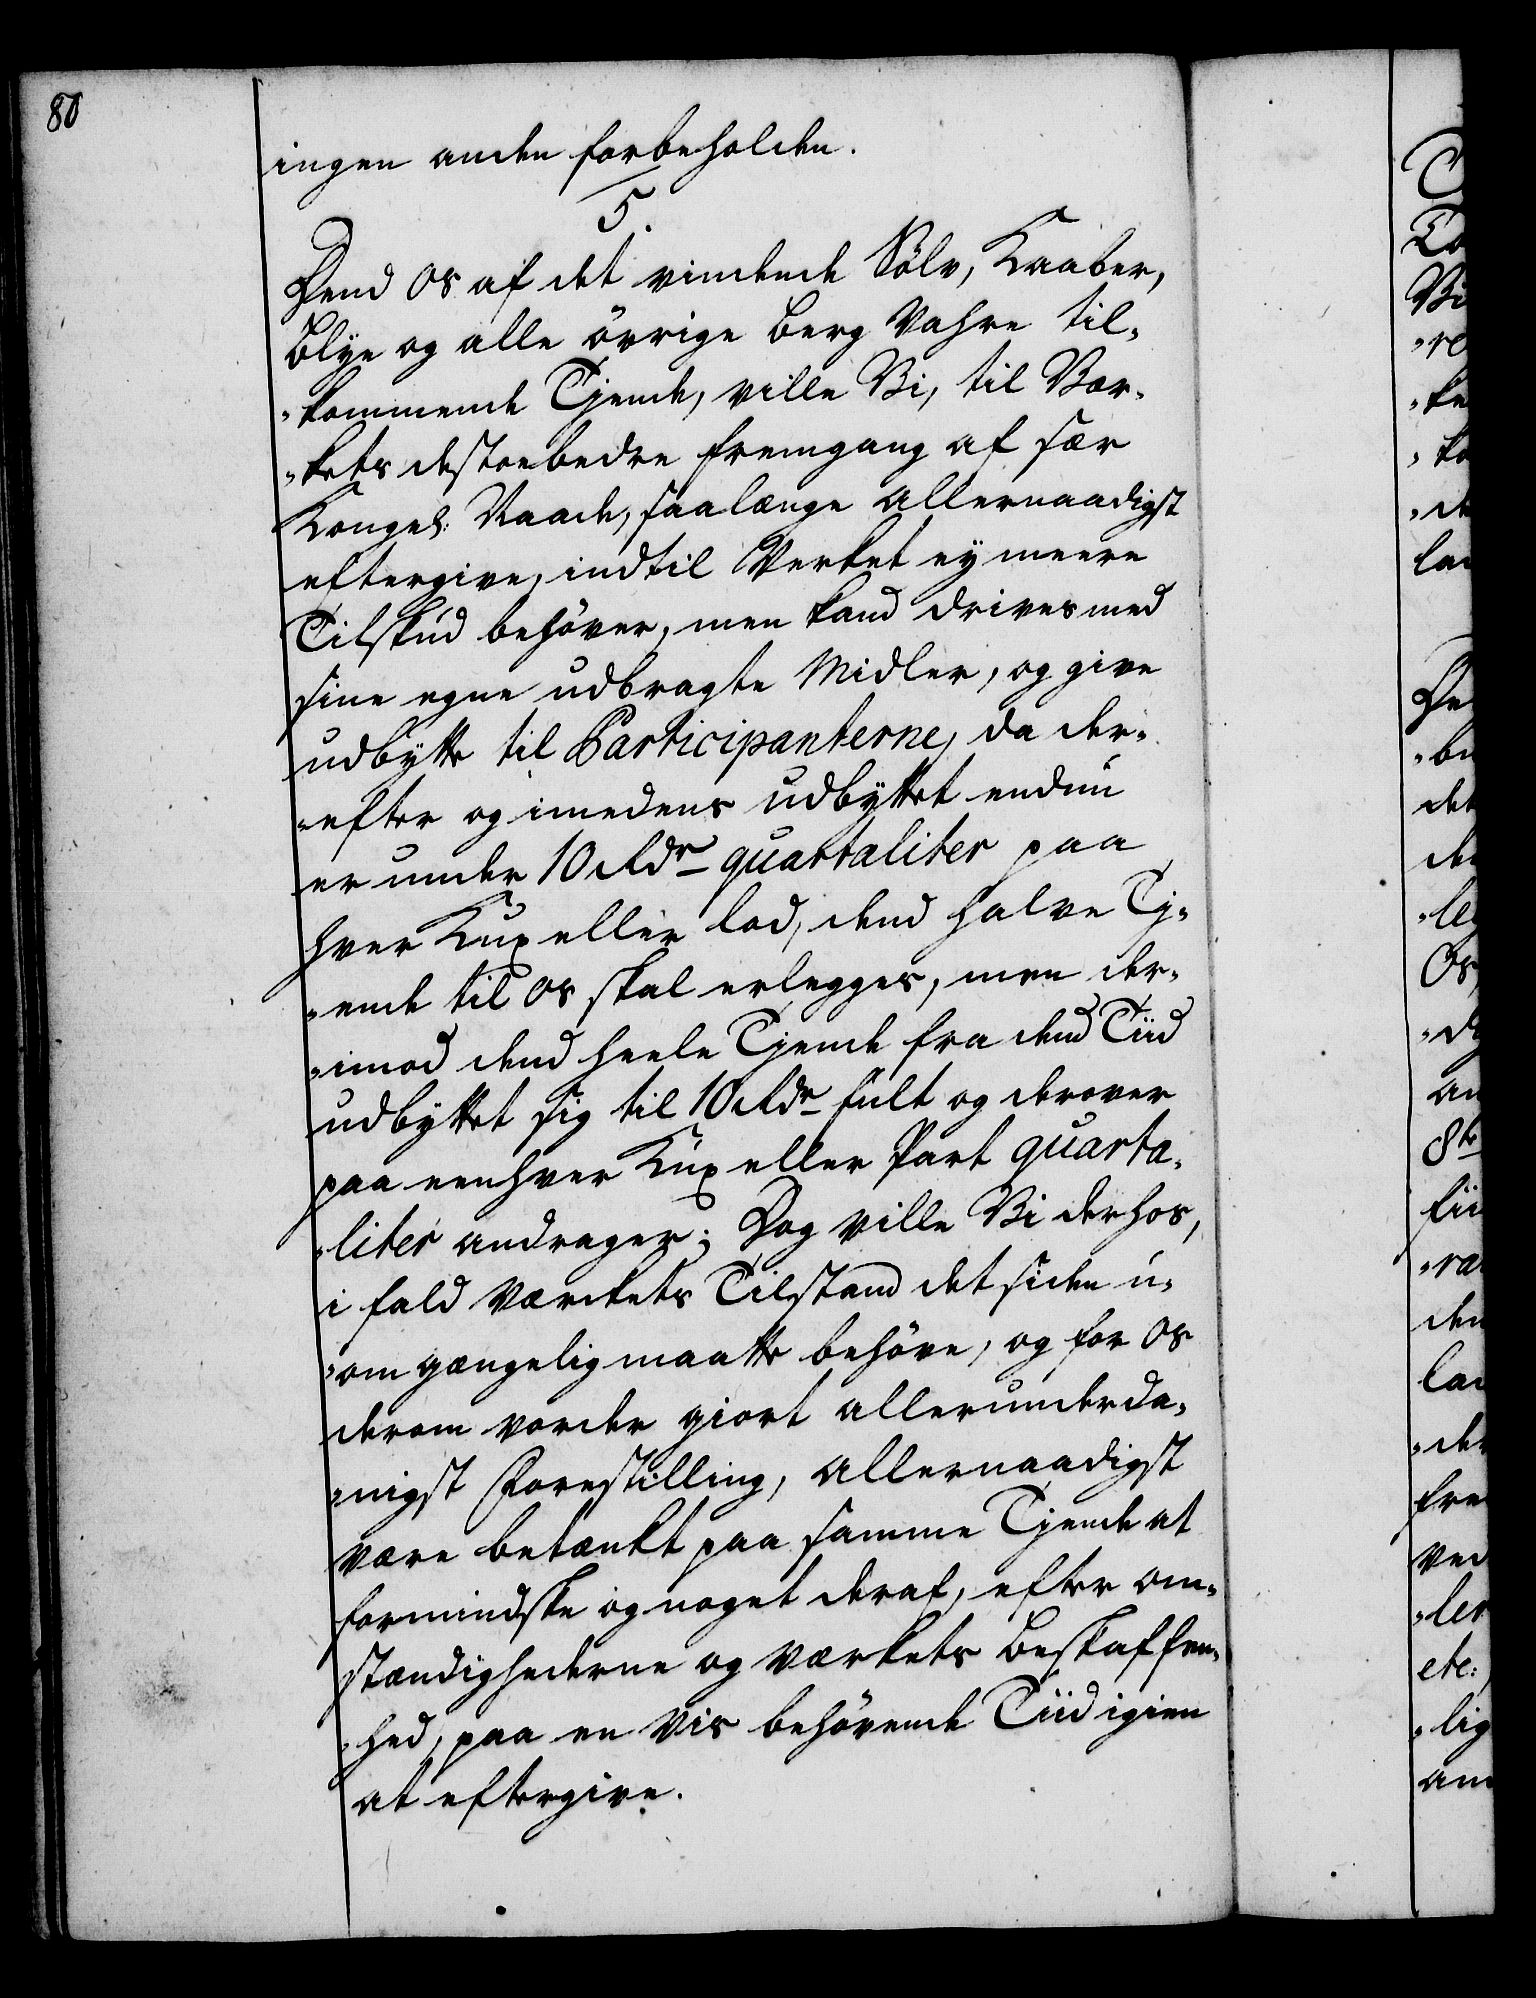 80
ingen anden forbeholden.
5.
Dend Os af det vindende Sölv, Kaaber,
Blye og alle övrige Berg Vahre til-
"kommende Tjende, ville Vi, til Vær-
"kets destoebedre fremgang af sær
Kongel: Naade, saalænge allernaadigst
eftergive, indtil Verket ey meere
Tilskud behöver, men kand drives med
sine egne udbragte Midler, og give
udbytte til Participanterne, da der-
"efter og imedens udbyttet endnu
er under 10 Rdr quartaliter paa
hver Kux eller lod, dend halve Tj-
"ende til Os skal erlegges, men der-
"imod dend heele Tjende fra dend Tiid
udbyttet sig til 10 Rdr fult og derover
paa eenhver Kux eller Part quarta-
"liter andrager; Dog ville Vi derhos,
i fald Værckets Tilstand det siden u-
"omgængelig maatte behöve, og for Os
derom vorder giort allerunderda-
"nigst Forestilling, allernaadigst
være betænkt paa samme Tjende at
formindske og noget deraf, efter om-
stændighederne og Værkets Beskaffen-
"hed, paa en vis behövende Tiid igien
at eftergive.